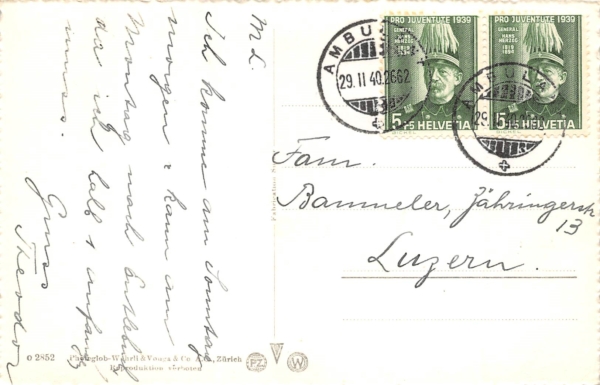 M L.
Ich komme am Sonntag
morgen & kann am
Montag nach Entlebuch
da ich halb 1 anfangen
muss.
Gruss
Theodor
PRO JUVENTUTE 1939
GENERAL
HANS
HERZOG
1819
1894
5+5 HELVETIA
PRO JUVENTUTE 1939
GENERAL
HANS
HERZOG
1819
1894
5+5 HELVETIA
AMBULANT
29.II.40.2662
AMBULANT
Fam.
Bammeler, Zähringerstr
13
Luzern.
O 2852 Photoglob-Wehrli & Vouga & Co. A.G., Zürich
Reproduktion verboten
PZ W